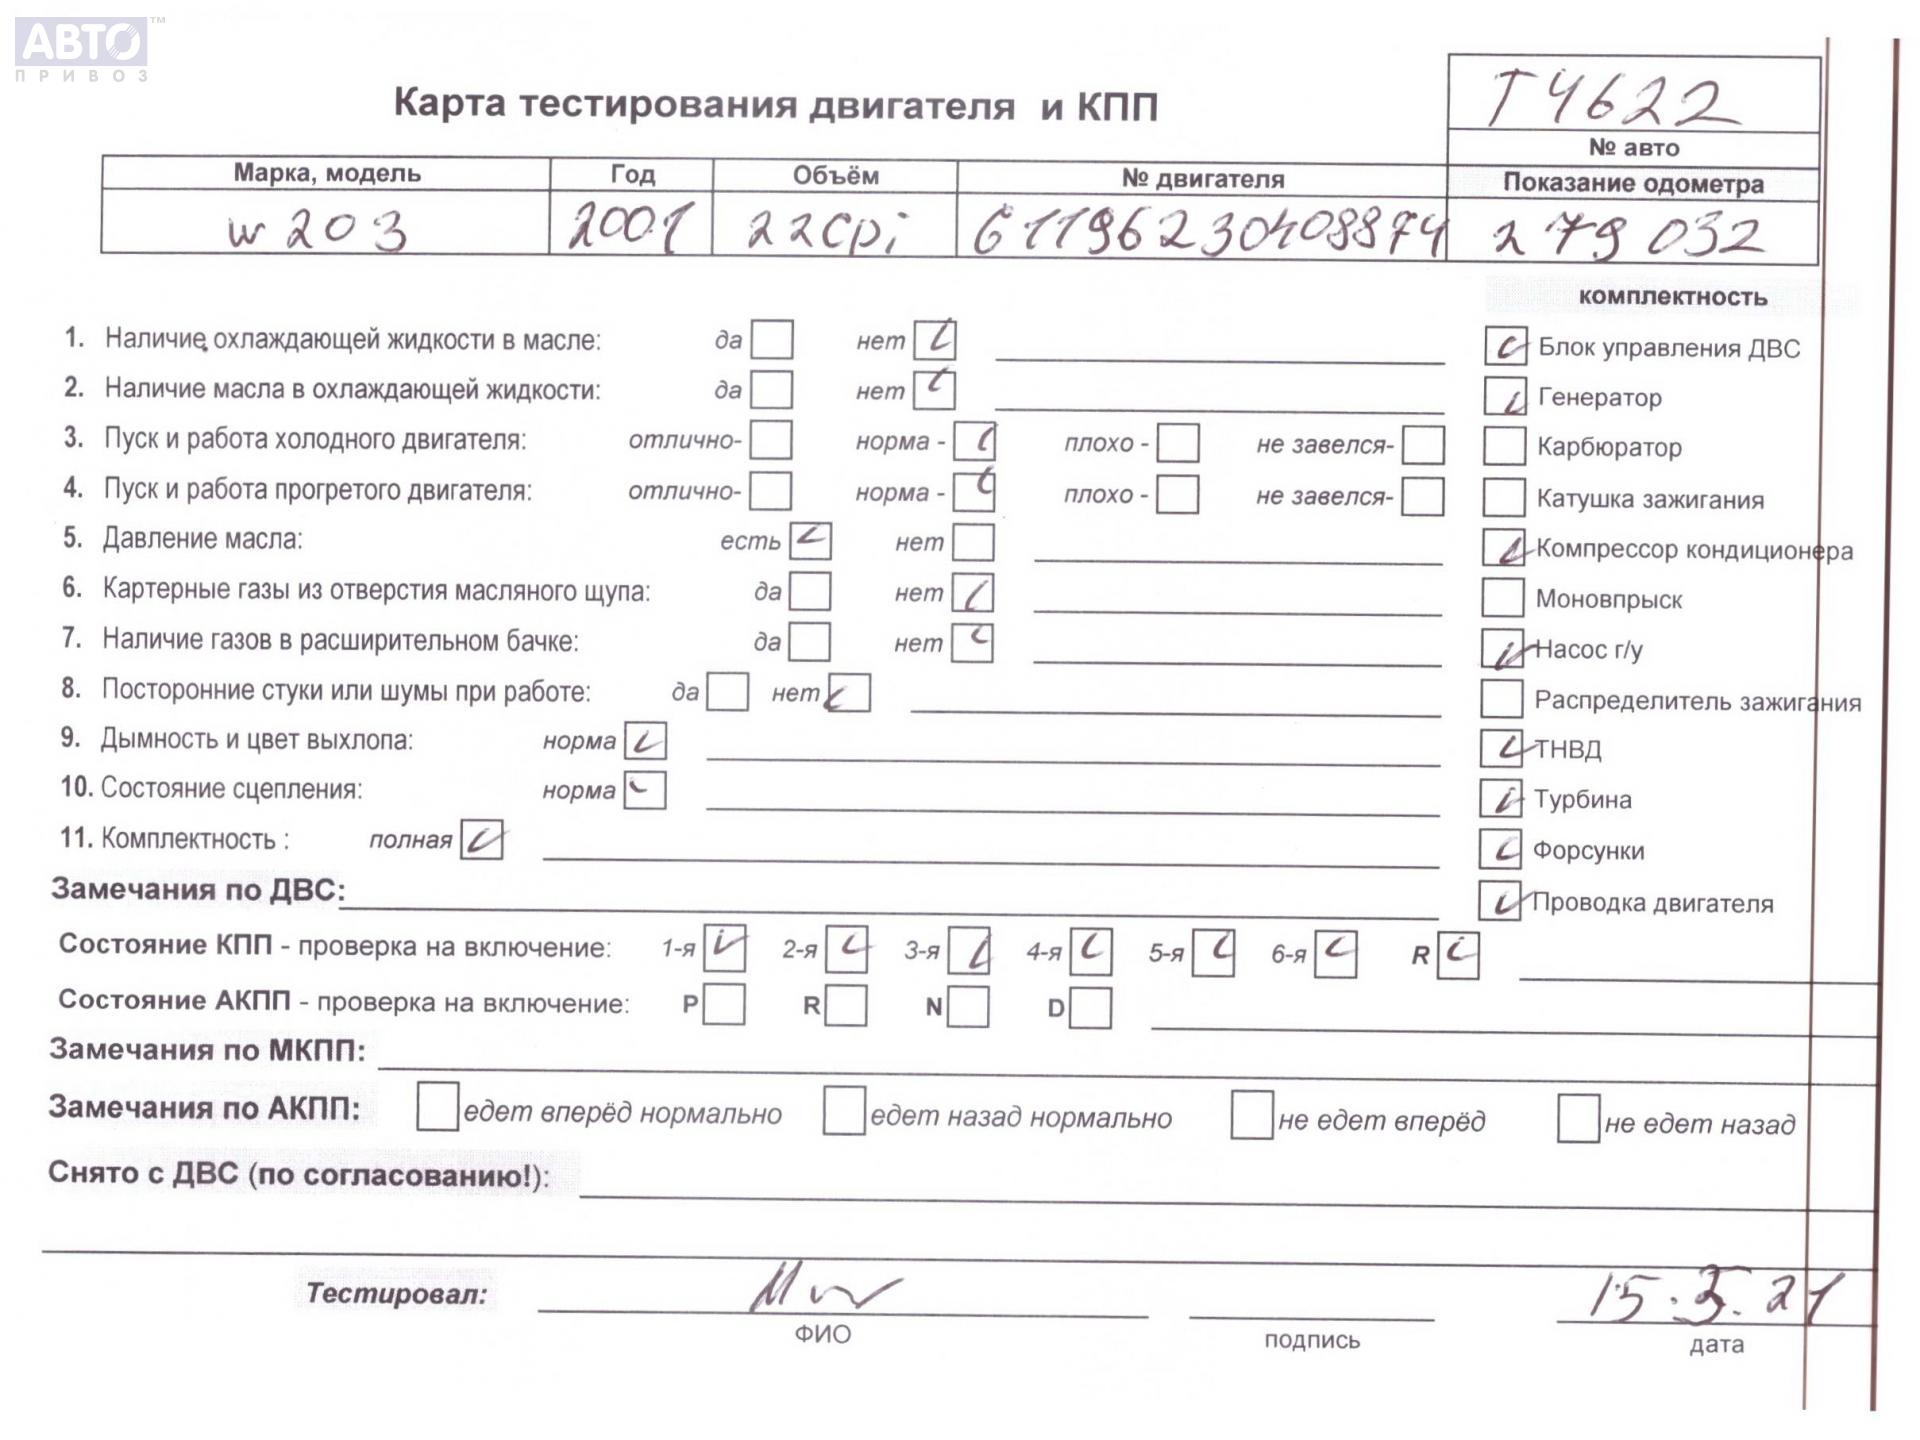 АВТО™
ПРИВОЗ
Т4622
Карта тестирования двигателя и КПП
№ авто
Марка, модель Год Объём № двигателя Показание одометра
w203 2001 22cpi 61196230408874 279032
комплектность
1. Наличие охлаждающей жидкости в масле: да нет Блок управления ДВС
2. Наличие масла в охлаждающей жидкости: да нет Генератор
3. Пуск и работа холодного двигателя: отлично- норма - плохо - не завелся- Карбюратор
4. Пуск и работа прогретого двигателя: отлично- норма - плохо - не завелся- Катушка зажигания
5. Давление масла: есть нет Компрессор кондиционера
6. Картерные газы из отверстия масляного щупа: да нет Моновпрыск
7. Наличие газов в расширительном бачке: да нет Насос г/у
8. Посторонние стуки или шумы при работе: да нет Распределитель зажигания
9. Дымность и цвет выхлопа: норма ТНВД
10. Состояние сцепления: норма Турбина
11. Комплектность : полная Форсунки
Замечания по ДВС: Проводка двигателя
Состояние КПП - проверка на включение: 1-я 2-я 3-я 4-я 5-я 6-я R
Состояние АКПП - проверка на включение: P R N D
Замечания по МКПП:
Замечания по АКПП: едет вперёд нормально едет назад нормально не едет вперёд не едет назад
Снято с ДВС (по согласованию!):
Тестировал: 15.5.21
ФИО подпись дата